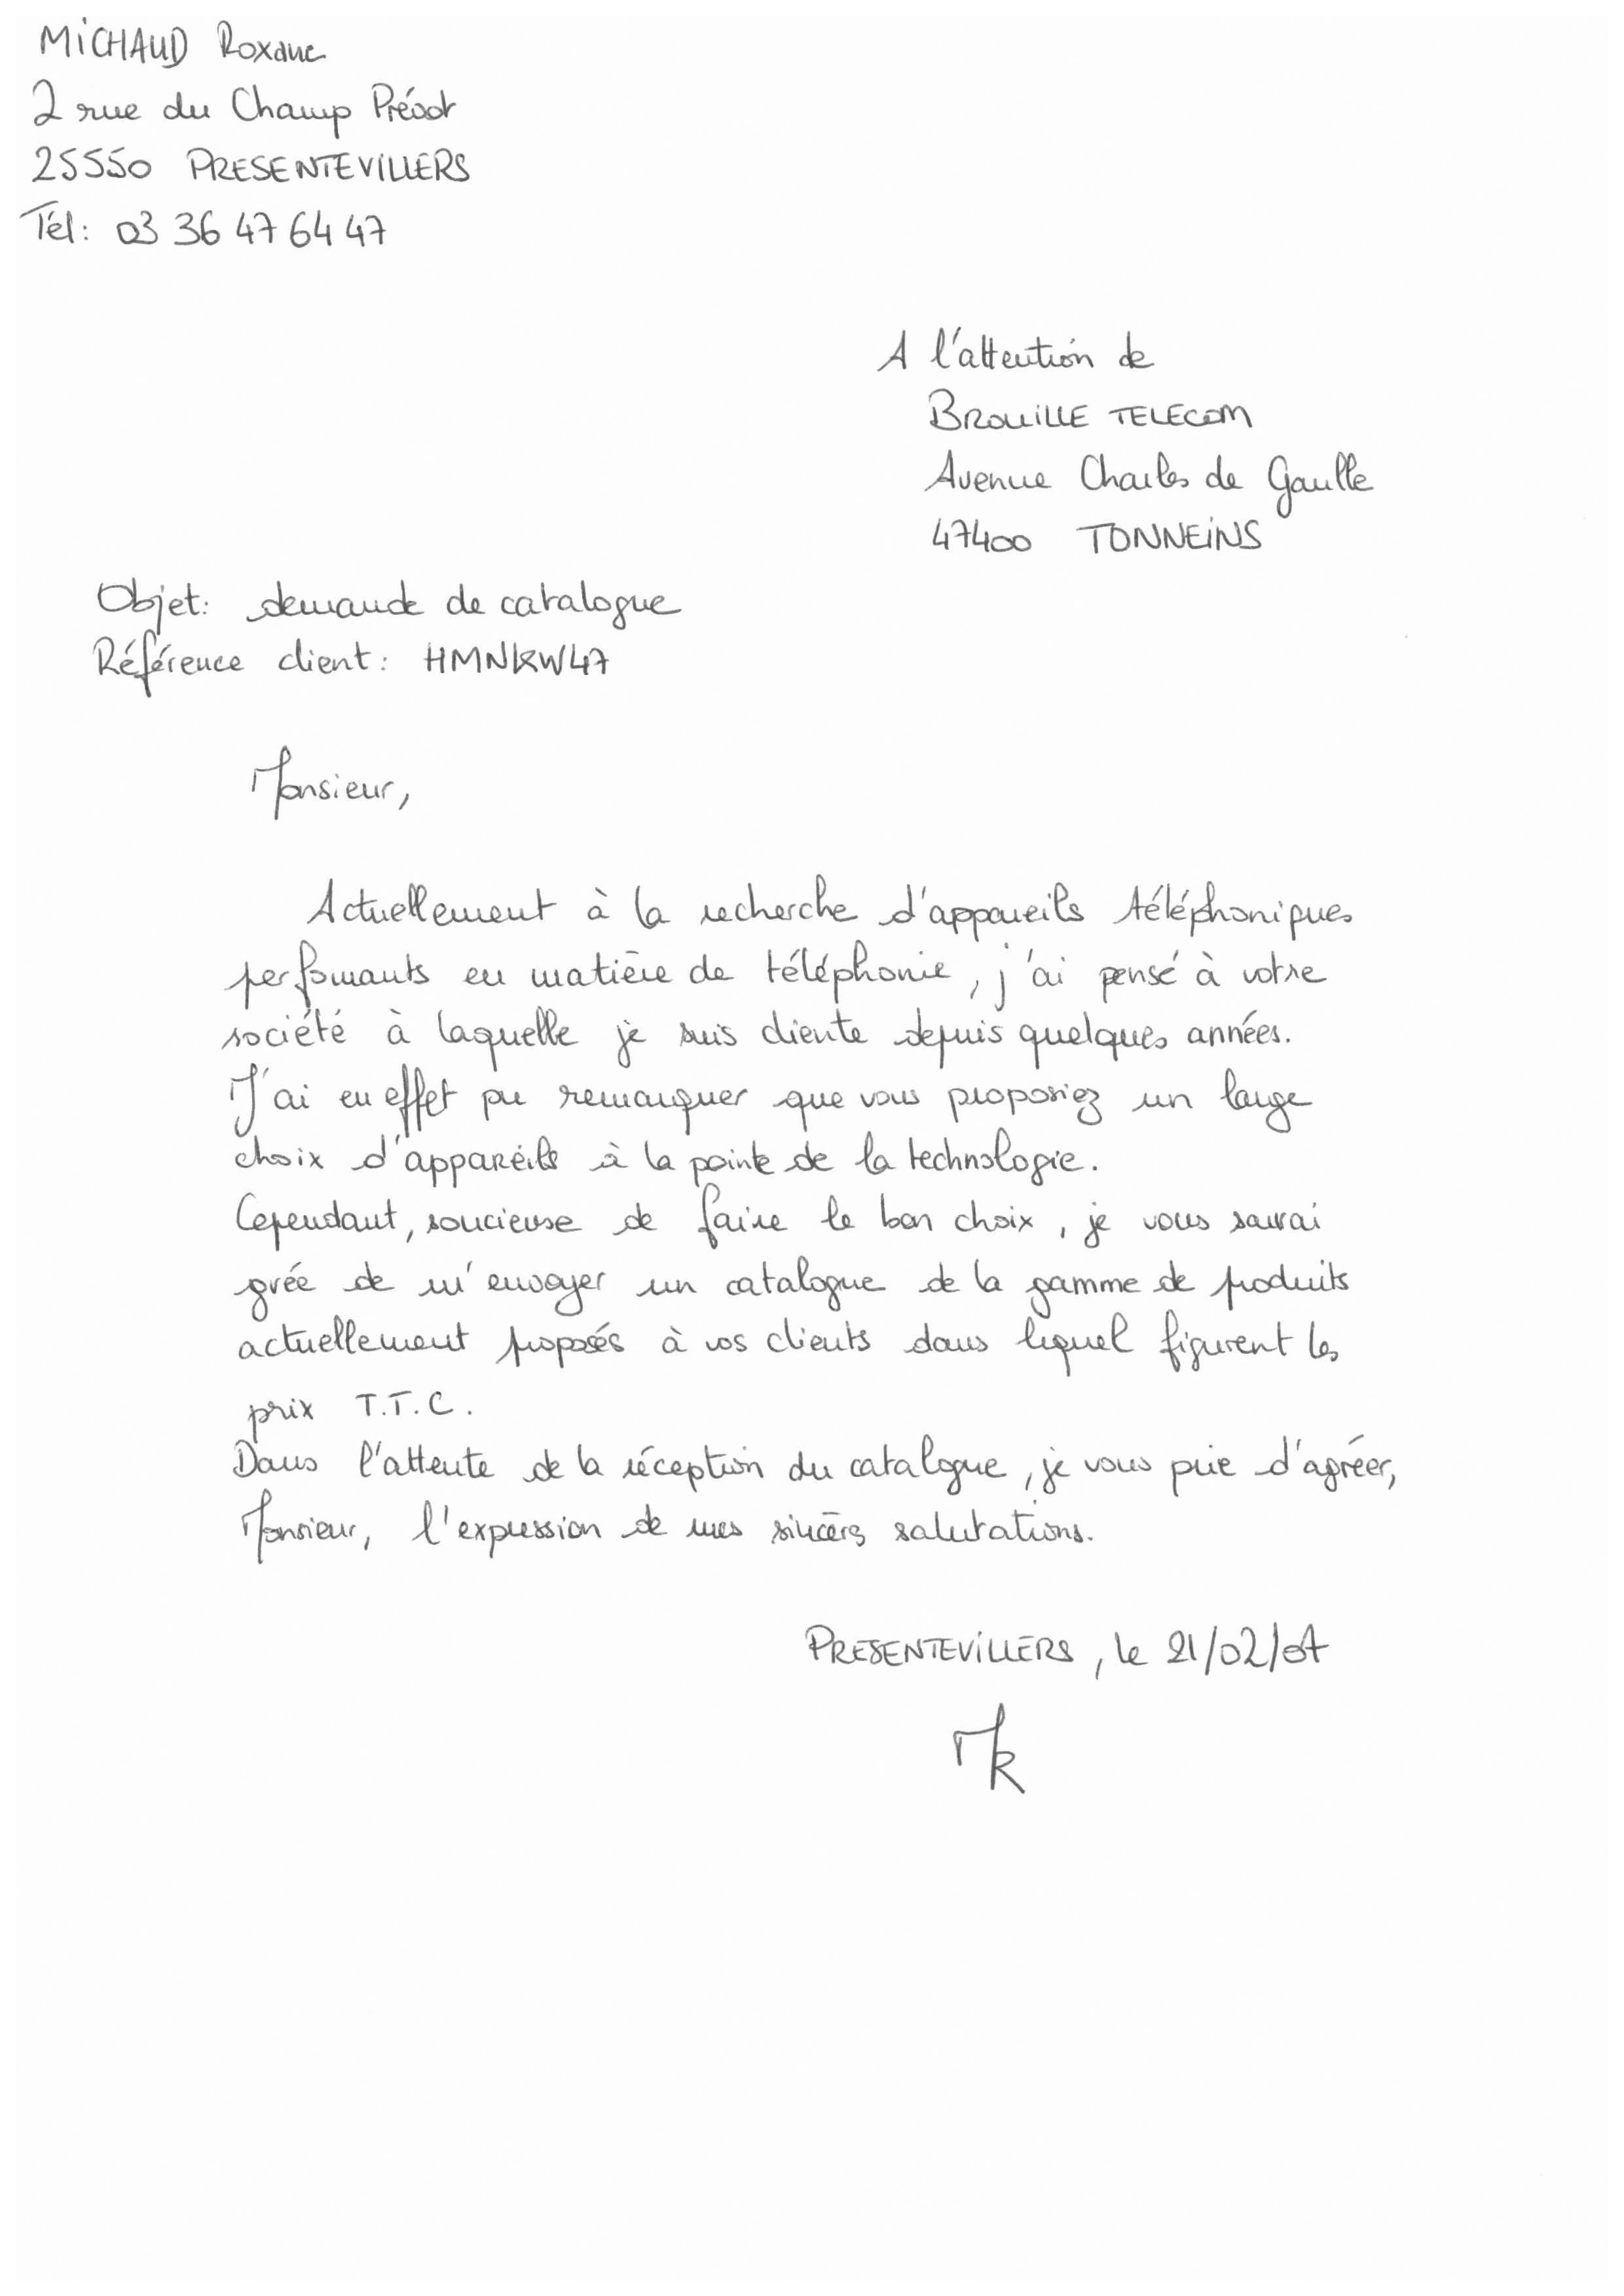 MICHAUD Roxane
2 rue du Champ Prévot
25550 PRESENTEVILLERS
Tél: 03 36 47 64 47
A l'attention de
BROUILLE TELECOM
Avenue Charles de Gaulle
47400 TONNEINS
Objet: demande de catalogue
Référence client: HMNKW47
Monsieur,
Actuellement à la recherche d'appareils téléphoniques
perfomants en matière de téléphonie, j'ai pensé à votre
société à laquelle je suis cliente depuis quelques années.
J'ai en effet pu remarquer que vous proposiez un large
choix d'appareils à la pointe de la technologie.
Cependant, soucieuse de faire le bon choix, je vous saurai
grée de m'envoyer un catalogue de la gamme de produits
actuellement proposés à vos clients dans lequel figurent les
prix T.T.C.
Dans l'attente de la réception du catalogue, je vous prie d'agréer,
Monsieur, l'expression de mes sincères salutations.
PRESENTEVILLERS, le 21/02/07
MR